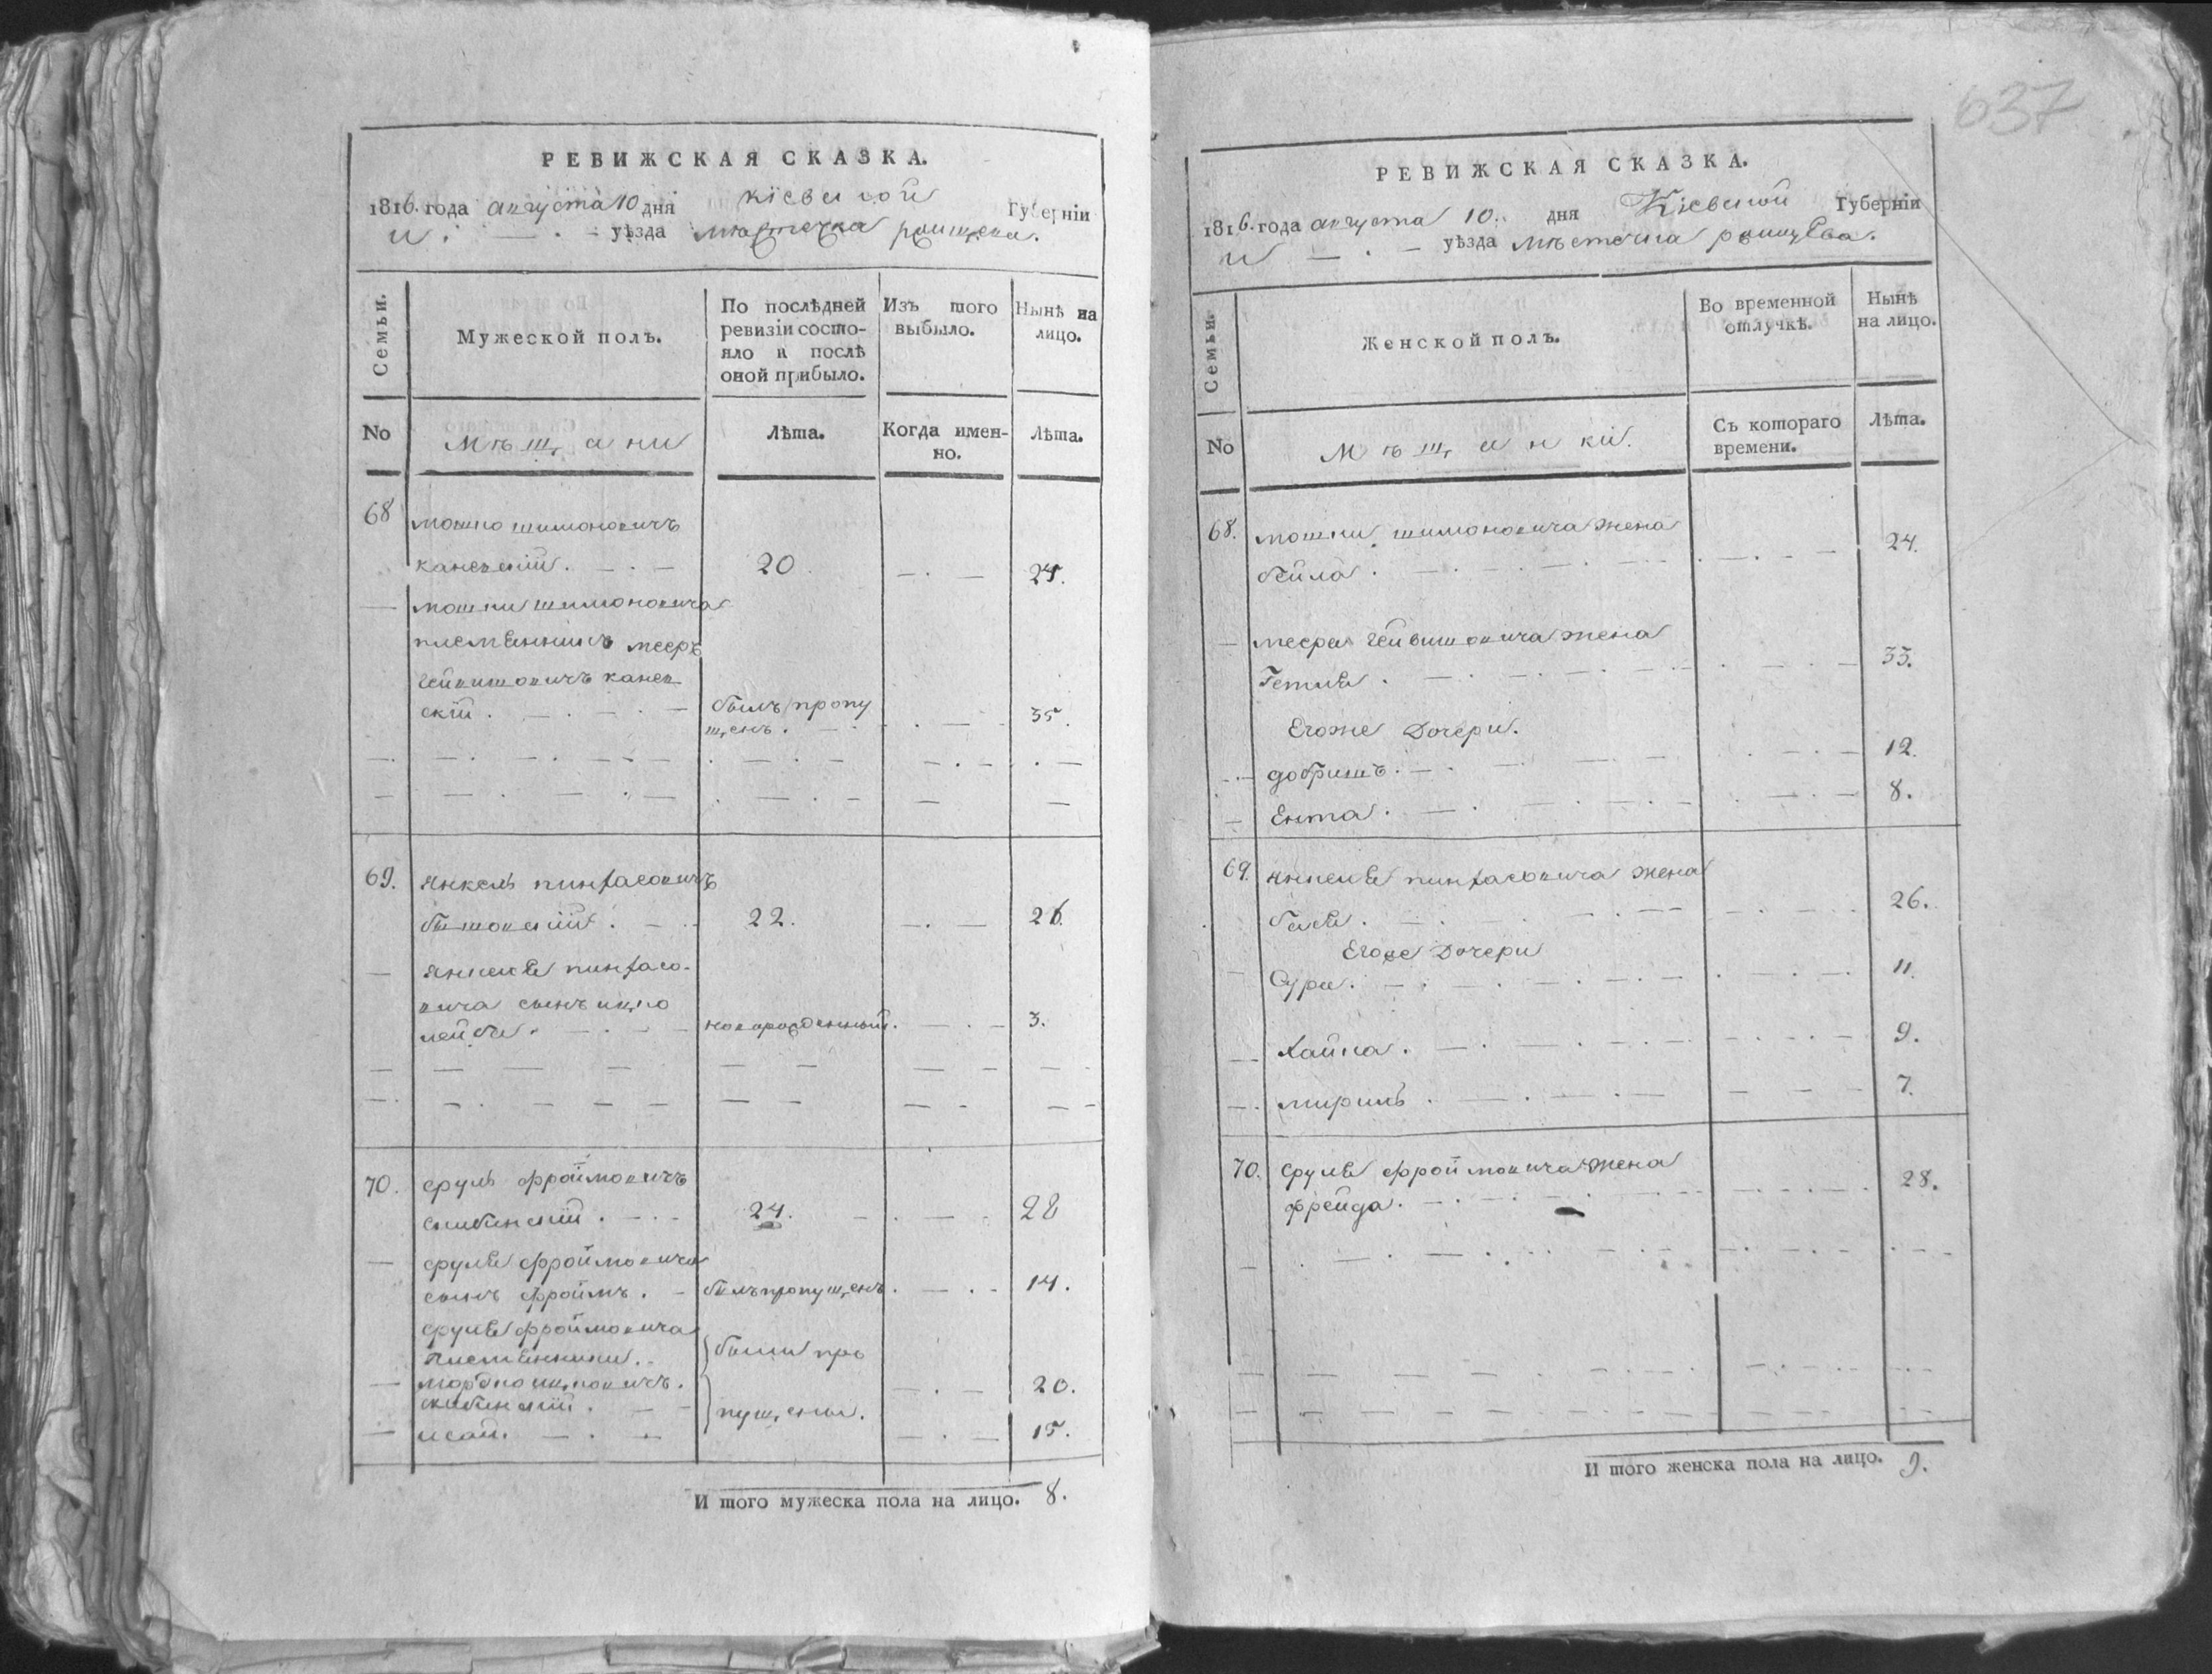 637
РЕВИЖСКАЯ СКАЗКА.
1816. года августа 10 дня Кіевской Губерніи
и уѣзда мѣстечка
Семьи.
Мужеской полъ.
По послѣдней ревизіи состо-
яло и послѣ
оной прибыло.
Изъ того
выбыло.
Нынѣ на
лицо.
No
мѣщани
Лѣта.
Когда имен-
но.
Лѣта.
68 мошко шимоновичъ
каневскій. 20. 24.
мошки шимоновича
племѣнникъ мееръ
канев
скій. былъ пропу
щенъ. 35.
69. Янкель пинхасовичъ
22. 26.
Янкеля пинхасо-
вича сынъ ицко
лейба. новорожденный. 3.
70. сруль фроймовичъ
скибинскій. 24. 28
сруля фроймовича
сынъ фроимъ. былъ пропущенъ. 14.
сруля фроймовича
племѣнники. были про
мордко ицковичъ. 20.
скибинскій. пущены.
исай. 15.
И того мужеска пола на лицо. 8.
РЕВИЖСКАЯ СКАЗКА.
1816. года августа 10. дня Кіевской Губерніи
и уѣзда мѣстечка
Семьи.
Женской полъ.
Во временной
отлучкѣ.
Нынѣ
на лицо.
No
мѣщанкій.
Съ котораго
времени.
Лѣта.
68. мошки шимоновича жена
бейла. 24.
меера жена
33.
Егоже Дочери.
добришъ. 12.
Ента. 8.
69. Янкеля пинхасовича жена
бася. 26.
Егоже Дочери
Сура. 11.
Хайка. 9.
мирилъ. 7.
70. Сруля фроймовича жена
фрейда. 28.
И того женска пола на лицо. 9.